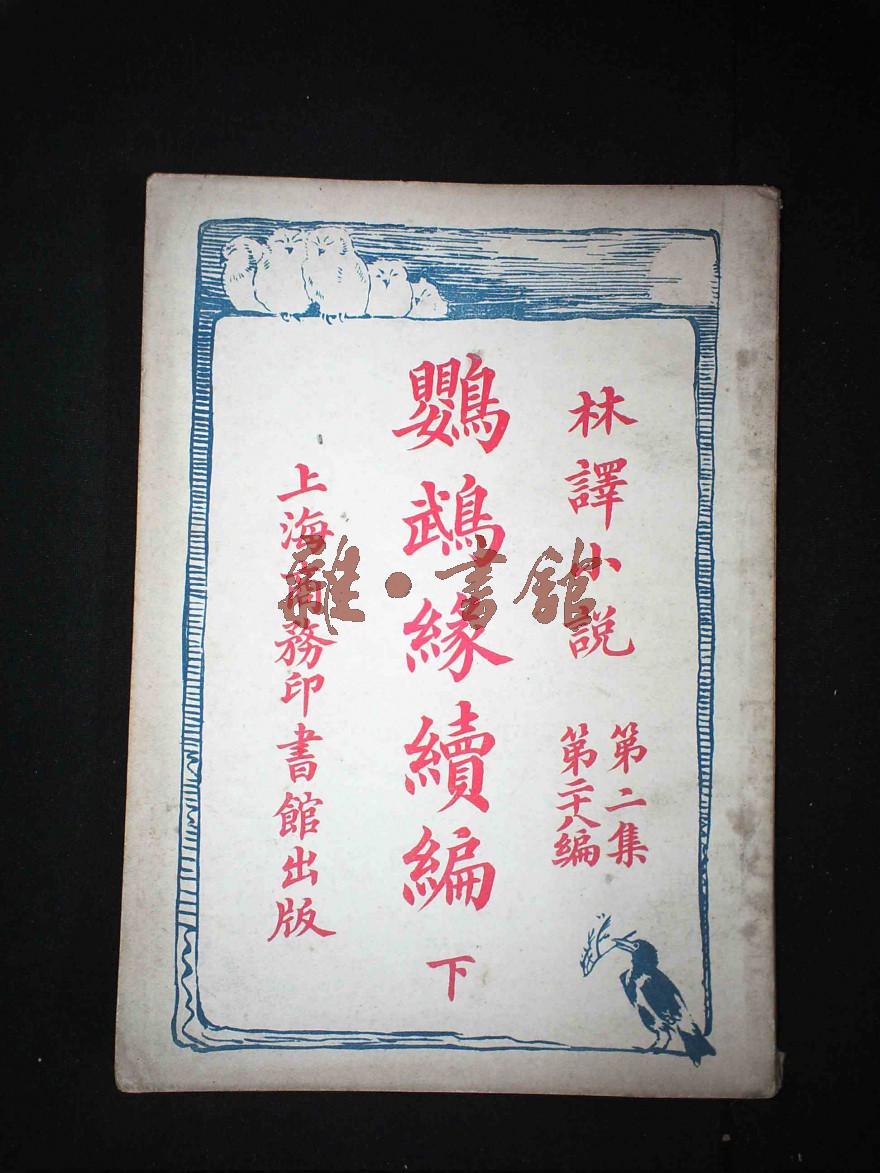 林譯小説
第二集
第二十八編
鸚鵡緣續編 下
上海商務印書館出版
雜·書館